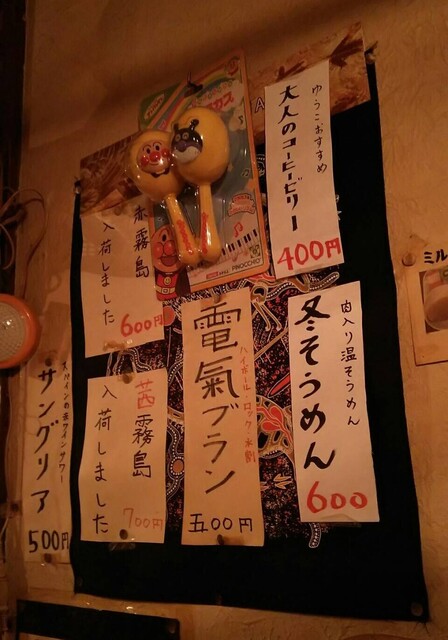 ゆうこおすすめ
大人のコーヒーゼリー
400円
赤霧島
入荷しました
600円
肉入り温そうめん
冬そうめん
600
電氣ブラン
ハイボール・ロック・水割
五00円
茜霧島
入荷しました
700円
サングリア
500円
PINOCCHIO
ミル